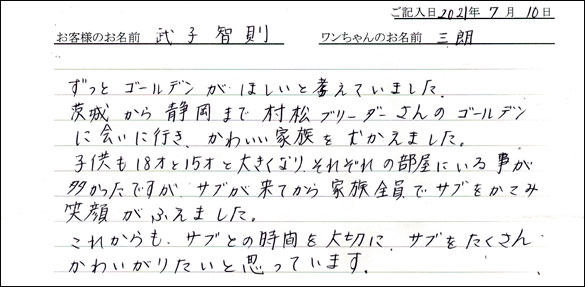 ご記入日 2021年 7月 10日
お客様のお名前 武子智則 ワンちゃんのお名前 三朗
ずっと ゴールデン が ほしいと 考えていました.
茨城 から 静岡 まで 村松 ブリーダー さんの ゴールデン
に 会いに行き、かわいい 家族 を むかえました。
子供も 18才と15才と大きくなり、それぞれ の 部屋にいる 事が
多かったですが、サブが 来てから 家族 全員 で サブを かこみ
笑顔 が ふえました。
これからも、サブとの時間 を 大切に、サブを たくさん
かわいがりたいと 思っています.